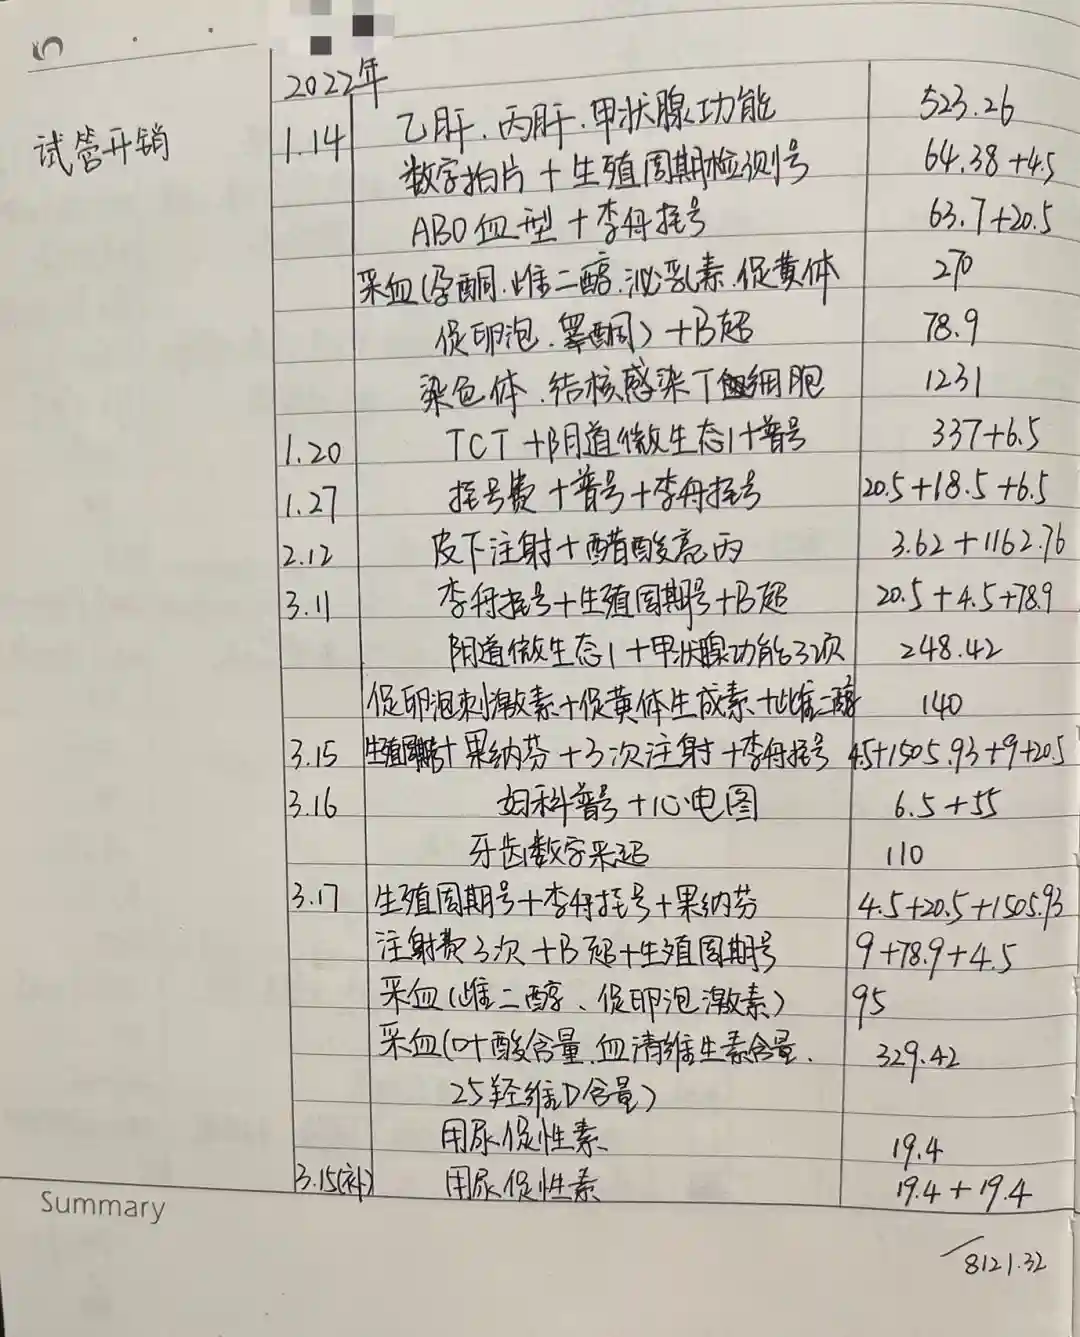 2022年
试管开销
1.14 乙肝.丙肝.甲状腺功能 523.26
数字拍片+生殖周期检测号 64.38+4.5
ABO血型+李舟挂号 63.7+20.5
采血(孕酮.雌二醇.泌乳素.促黄体 270
促卵泡.睾酮)+B超 78.9
染色体.结核感染T细胞 1231
1.20 TCT+阴道微生态1+普号 337+6.5
1.27 挂号费+普号+李舟挂号 20.5+18.5+6.5
2.12 皮下注射+醋酸亮丙 3.62+1162.76
3.11 李舟挂号+生殖周期号+B超 20.5+4.5+78.9
阴道微生态1+甲状腺功能3项 248.42
促卵泡刺激素+促黄体生成素+雌二醇 140
3.15 生殖周期号+果纳芬+3次注射+李舟挂号 4.5+1505.93+9+20.5
3.16 妇科普号+心电图 6.5+55
牙齿数字采超 110
3.17 生殖周期号+李舟挂号+果纳芬 4.5+20.5+1505.93
注射费3次+B超+生殖周期号 9+78.9+4.5
采血(雌二醇、促卵泡激素) 95
采血(叶酸含量.血清维生素含量. 329.42
25羟维D含量)
用尿促性素 19.4
3.15(补) 用尿促性素 19.4+19.4
Summary
8121.32